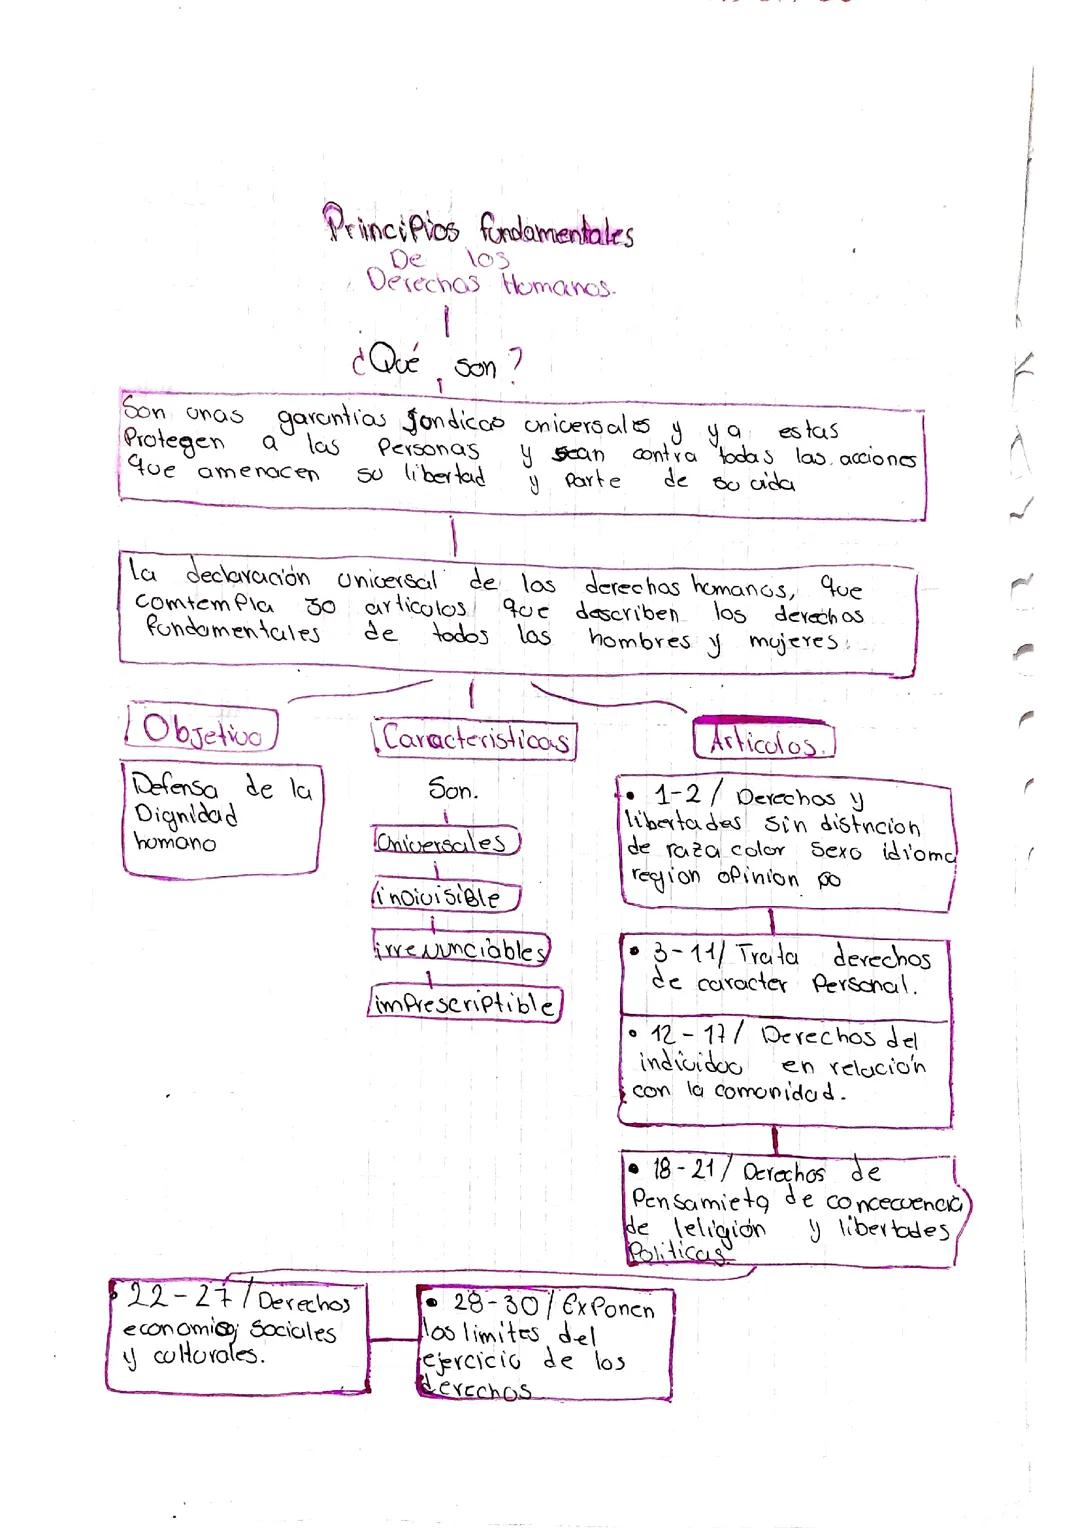 Principios fundamentales
De los
Derechos Humanos.
¿Qué son?
Son unas garantias Jondicas universales y ya estas
Protegen a las Personas y sean contra todas las acciones
que amenacen su libertad y parte de su vida
la declaración universal de los derechos humanos, que
comtempla 30 articulos que describen los derechos
fundamentales de todos los hombres y mujeres.
Objetivo
Caracteristicas
Articulos.
Defensa de la
Dignidad
humano
Son.
Universales
indivisible
irrenunciables
imprescriptible
• 1-2 / Derechos y
libertades sin distncion
de raza color sexo idioma
region opinion
• 3-11/ Trata derechos
de caracter Personal.
• 12-17/ Derechos del
individuo en relación
con la comunidad.
• 18-21/ Derechos de
Pensamieta de concecuencia
de leligión y libertades
Politicas
• 22-27/ Derechos
economico; sociales
y culturales.
• 28-30/ Exponen
los limites del
ejercicio de los
derechos